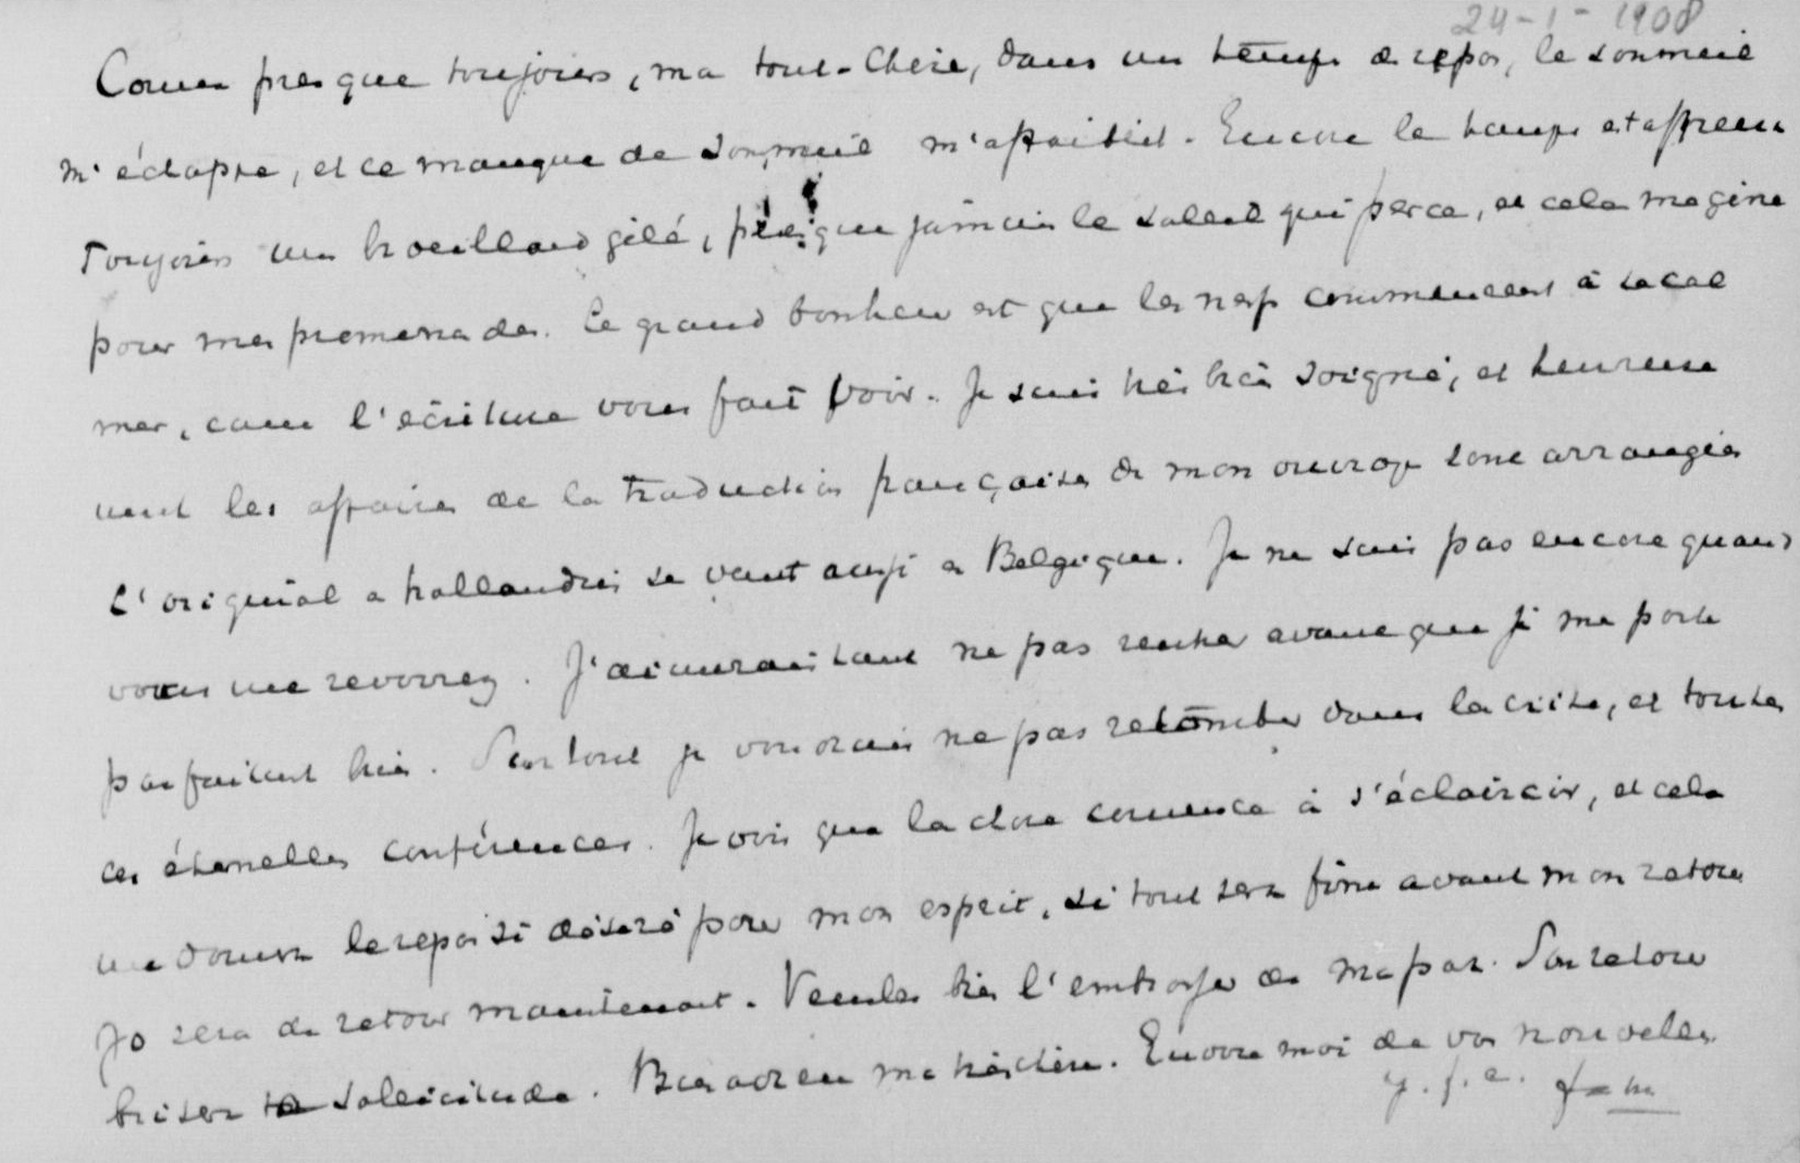 24-1-1908
Comme presque toujours, ma tout-Chère, dans un temps de repos, le sommeil
m'échappe, et ce manque de sommeil m'affaiblit. Encore le temps est affreux
Toujours un brouillard gélé, presque jamais le soleil qui perce, et cela me gêne
pour mes promenades. Le grand bonheur est que les nerfs commencent à se cal
mer, comme l'écriture vous fait voir. Je suis très bien soigné, et heureuse
ment les affaires de la traduction française de mon ouvrage sont arrangées
L'original hollandais se vend aussi en Belgique. Je ne sais pas encore quand
vous me reverrez. J'aimerais tant ne pas rentrer avant que je me porte
parfaitement bien. Surtout je voudrais ne pas retomber dans la crise, et toutes
ces éternelles conférences. Je vois que la chose commence à s'éclaircir, et cela
me donnera le repos si désiré pour mon esprit, si tout sera fini avant mon retour
Jo sera de retour maintenant. Veuillez bien l'embrasser de ma part. Son retour
brisera ta solicitude. Bien adieu ma très chère. Envoie moi de vos nouvelles.